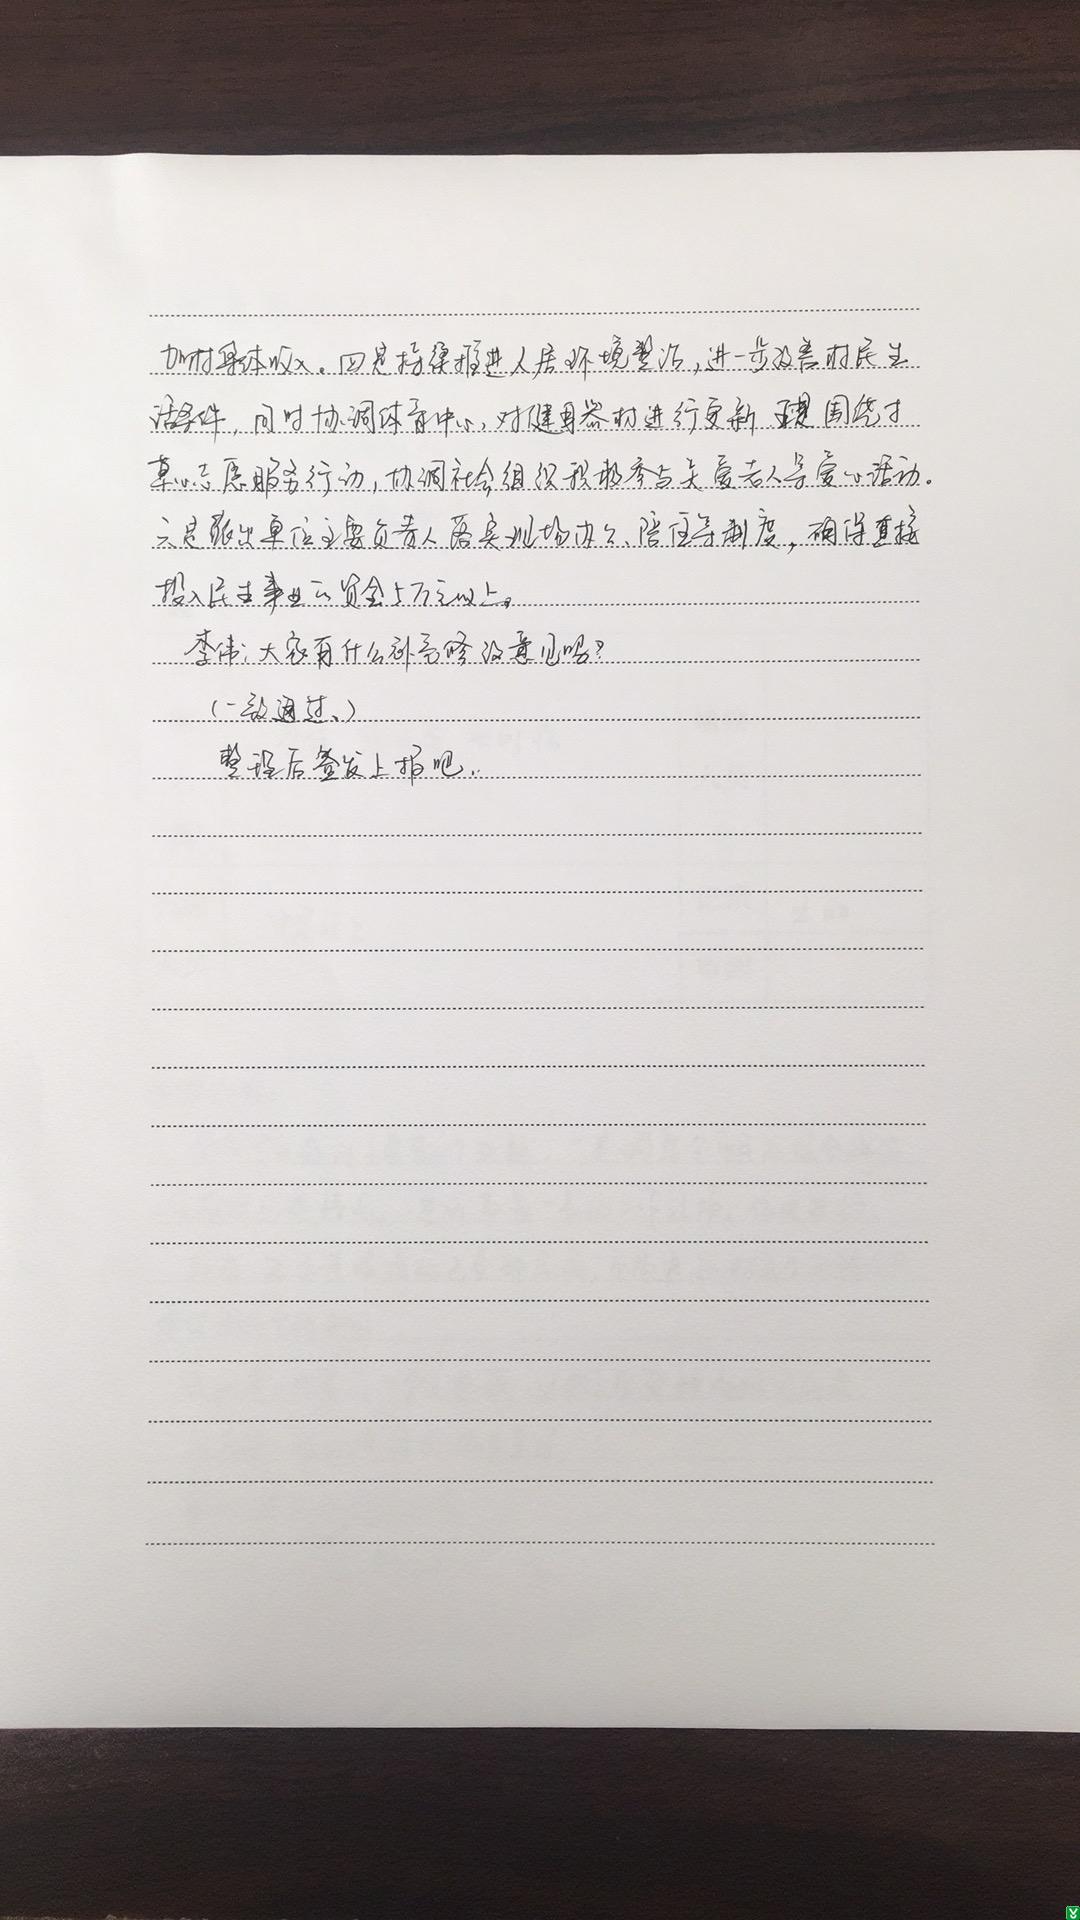 加村集体收入。四是持续推进人居环境整治，进一步改善村民生
活条件，同时协调体育中心，对健身器材进行更新 五是 围绕
志愿服务行动，协调社会组织积极参与关爱老人等爱心活动。
六是派出单位主要负责人落实现场办公、陪住等制度，确保直接
投入民生事业的资金5万元以上。
李伟：大家有什么补充修改意见吗？
（一致通过、）
整理后签发上报吧..